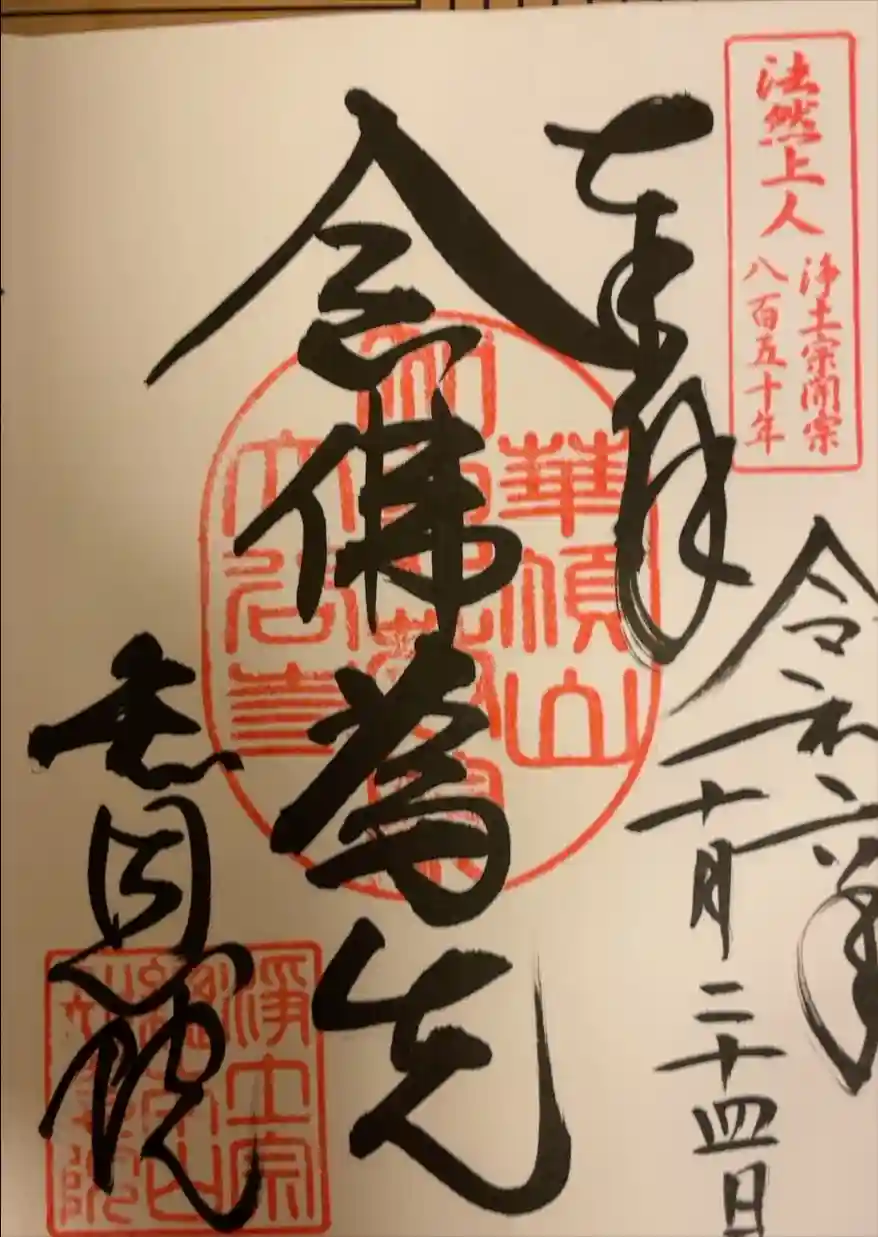 法然上人
浄土宗開宗
八百五十年
奉拝
令和六年
十月二十四日
念佛為先
華頂山
知恩院
浄土宗
総本山
知恩院